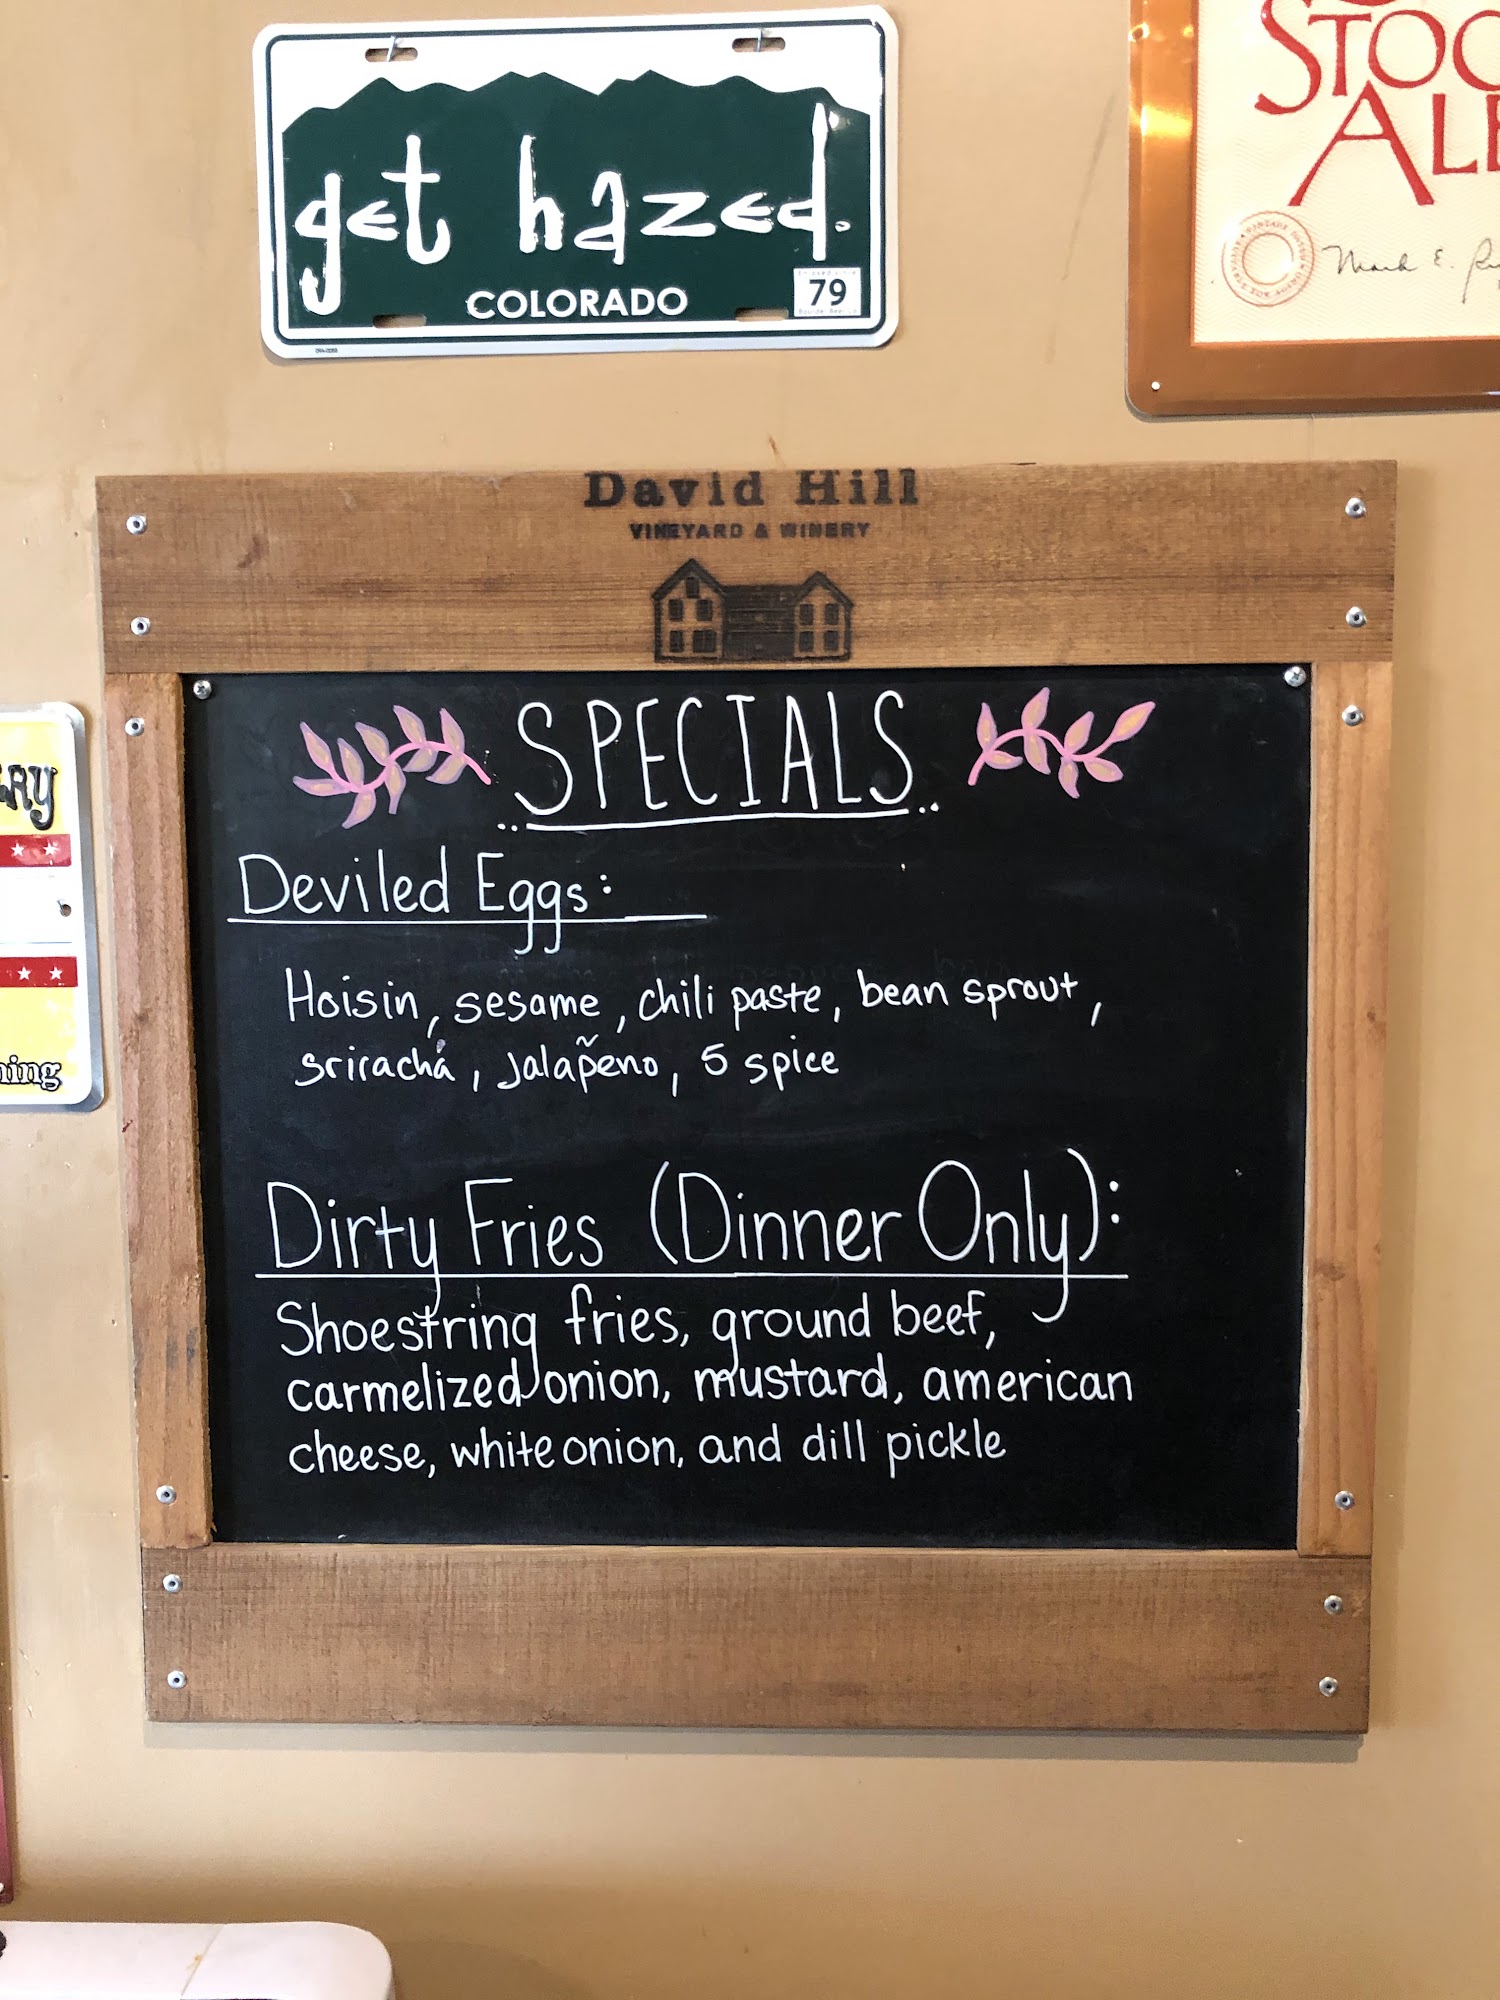 get hazed.
COLORADO
79
STOC
ALE
Mark E.
David Hill
VINEYARD & WINERY
SPECIALS
Deviled Eggs:
Hoisin, sesame, chili paste, bean sprout,
srirachá, jalap̃eno, 5 spice
Dirty Fries (Dinner Only):
Shoestring fries, ground beef,
carmelized onion, mustard, american
cheese, white onion, and dill pickle